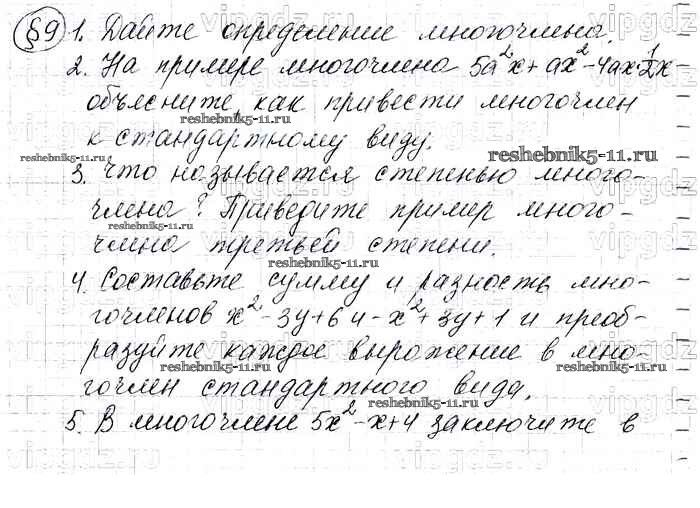 §9 1. Дайте определение многочлена.
2. На примере многочлена 5a²x+ax²-4ax·½x
объясните, как привести многочлен
к стандартному виду.
3. Что называется степенью много-
члена? Приведите пример много-
члена третьей степени.
4. Составьте сумму и разность мно-
гочленов x²-3y+6 и -x²+3y+1 и преоб-
разуйте каждое выражение в мно-
гочлен стандартного вида.
5. В многочлене 5x²-x+4 заключите в
reshebnik5-11.ru
reshebnik5-11.ru
reshebnik5-11.ru
reshebnik5-11.ru
reshebnik5-11.ru
reshebnik5-11.ru
reshebnik5-11.ru
reshebnik5-11.ru
reshebnik5-11.ru